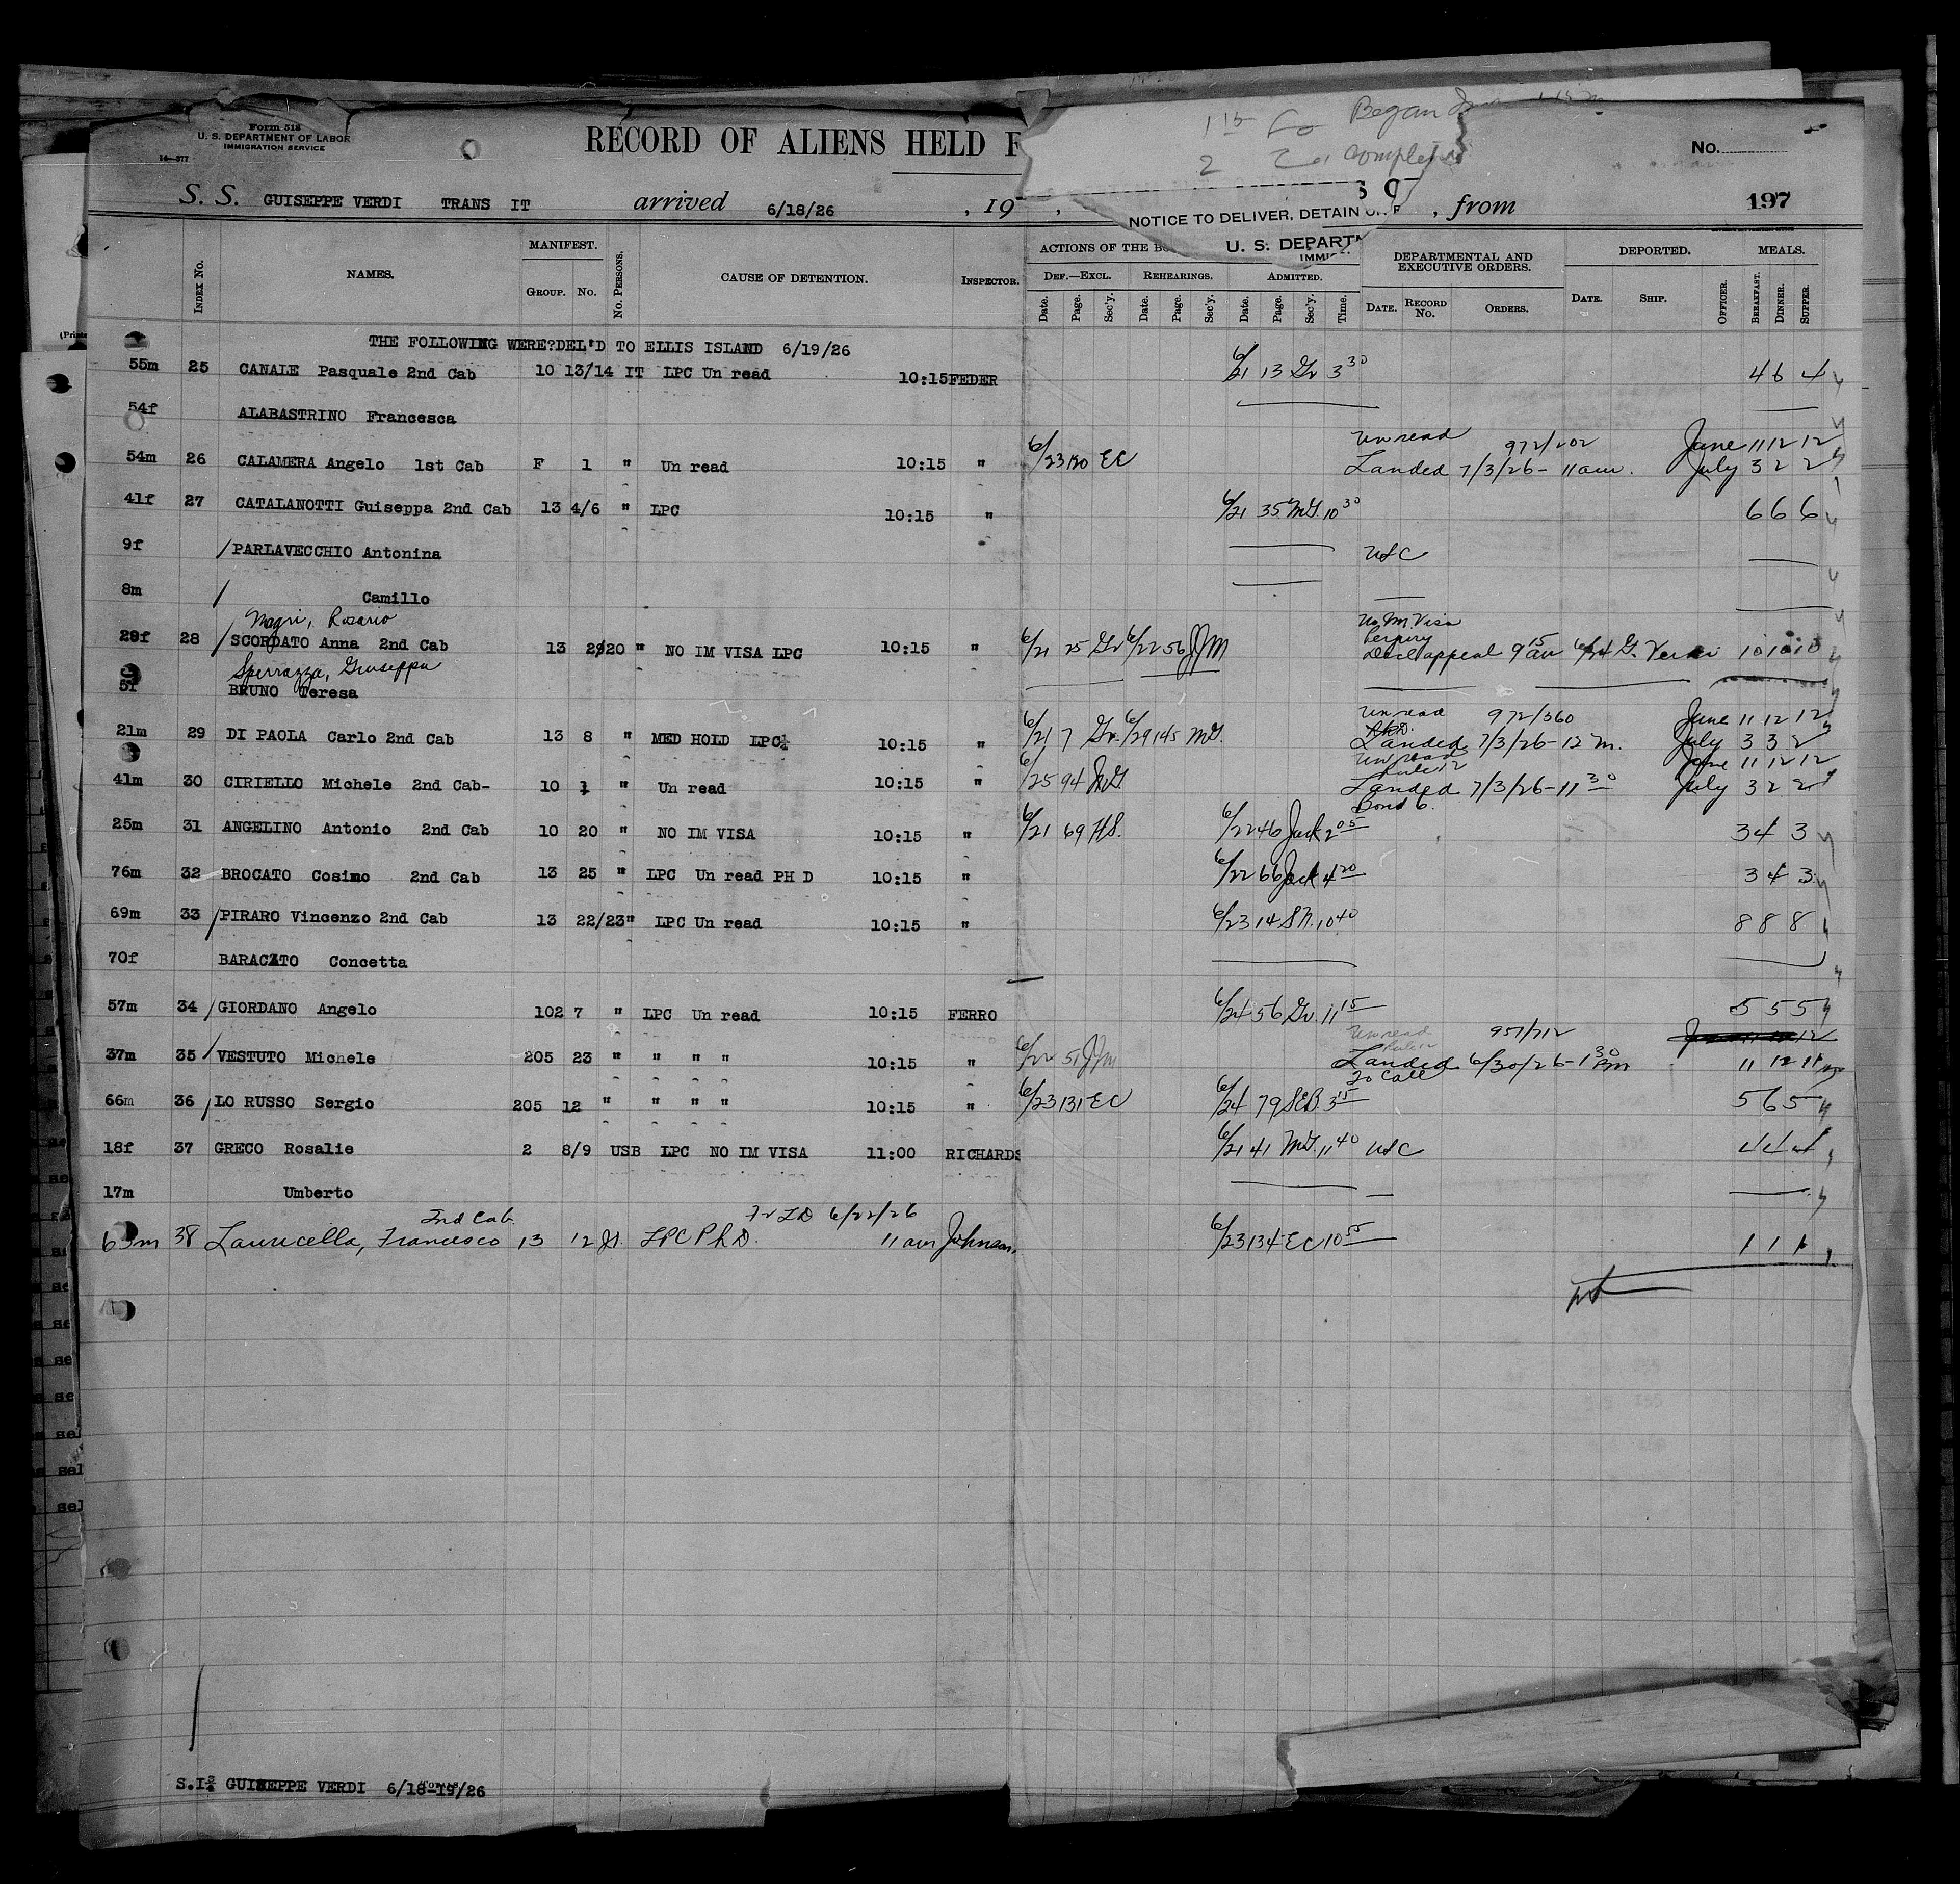 Form 518
U. S. DEPARTMENT OF LABOR
IMMIGRATION SERVICE
14—377
RECORD OF ALIENS HELD F
Began
2 complete
No.
S. S. GUISEPPE VERDI TRANS IT arrived 6/18/26 , 19 , , from 197
NOTICE TO DELIVER, DETAIN OR
U. S. DEPARTM
IMMI
INDEX No.
NAMES.
MANIFEST.
GROUP. No.
No. PERSONS.
CAUSE OF DETENTION.
INSPECTOR.
ACTIONS OF THE BO
DEF.—EXCL. REHEARINGS. ADMITTED.
Date. Page. Sec'y. Date. Page. Sec'y. Date. Page. Sec'y. Time.
DEPARTMENTAL AND
EXECUTIVE ORDERS.
DATE. RECORD No. ORDERS.
DEPORTED.
DATE. SHIP. OFFICER.
MEALS.
BREAKFAST. DINNER. SUPPER.
THE FOLLOWING WERE?DEL'D TO ELLIS ISLAND 6/19/26
55m 25 CANALE Pasquale 2nd Cab 10 13/14 IT LPC Un read 10:15 FEDER 6/21 13 Gr 3 30 4 6 4
54f ALABASTRINO Francesca
Unread 972/202 June 11 12 12
54m 26 CALAMERA Angelo 1st Cab F 1 " Un read 10:15 " 6/23 120 EC Landed 7/3/26 - 11am. July 3 2 2
41f 27 CATALANOTTI Guiseppa 2nd Cab 13 4/6 " LPC 10:15 " 6/21 35 MG. 10 30 6 6 6
9f /PARLAVECCHIO Antonina USC
8m / Camillo
Nagri, Rosario
No Im. Visa
perjury
29f 28 /SCORDATO Anna 2nd Cab 13 20 " NO IM VISA LPC 10:15 " 6/21 25 Gr 6/22 56 JJM appeal 9 15 am 6/24 G. Verdi 10 10 10
Sperrazza, Giuseppa
5f BRUNO Teresa
Unread 972/360 June 11 12 12
21m 29 DI PAOLA Carlo 2nd Cab 13 8 " MED HOLD LPC 10:15 " 6/21 7 Gr. 6/29 145 MG. Landed 7/3/26 - 12 M. July 3 3 2
Unread June 11 12 12
Rule 12
41m 30 CIRIELLO Michele 2nd Cab- 10 1 " Un read 10:15 " 6/25 94 MG. Landed 7/3/26 - 11 30 July 3 2 2
Bond 6.
25m 31 ANGELINO Antonio 2nd Cab 10 20 " NO IM VISA 10:15 " 6/21 69 HS. 6/22 46 Jack 2 05 3 4 3
76m 32 BROCATO Cosimo 2nd Cab 13 25 " LPC Un read PH D 10:15 " 6/22 66 Jack 4 20 3 4 3
69m 33 /PIRARO Vincenzo 2nd Cab 13 22/23" LPC Un read 10:15 " 6/23 14 SN. 10 40 8 8 8
70f BARACATO Concetta
57m 34 /GIORDANO Angelo 102 7 " LPC Un read 10:15 FERRO 6/24 56 Gr. 11 15 5 5 5
Unread 957/712
Rule 12
37m 35 /VESTUTO Michele 205 23 " " " " 10:15 " 6/22 51 JJM Landed 6/30/26 - 1 30 pm 11 12 11
To Call
66m 36 /LO RUSSO Sergio 205 12 " " " " 10:15 " 6/23 131 EC 6/24 79 SEB. 3 15 5 6 5
18f 37 GRECO Rosalie 2 8/9 USB LPC NO IM VISA 11:00 RICHARDS 6/21 41 MG. 11 40 USC 4 4 4
17m Umberto
2nd Cab. 6/22/26
63m 38 Lauricella, Francesco 13 12 It. LPC Ph D. 11 am Johnson. 6/23 134 EC 10 55 1 1 1
S.I GUISEPPE VERDI 6/18-19/26